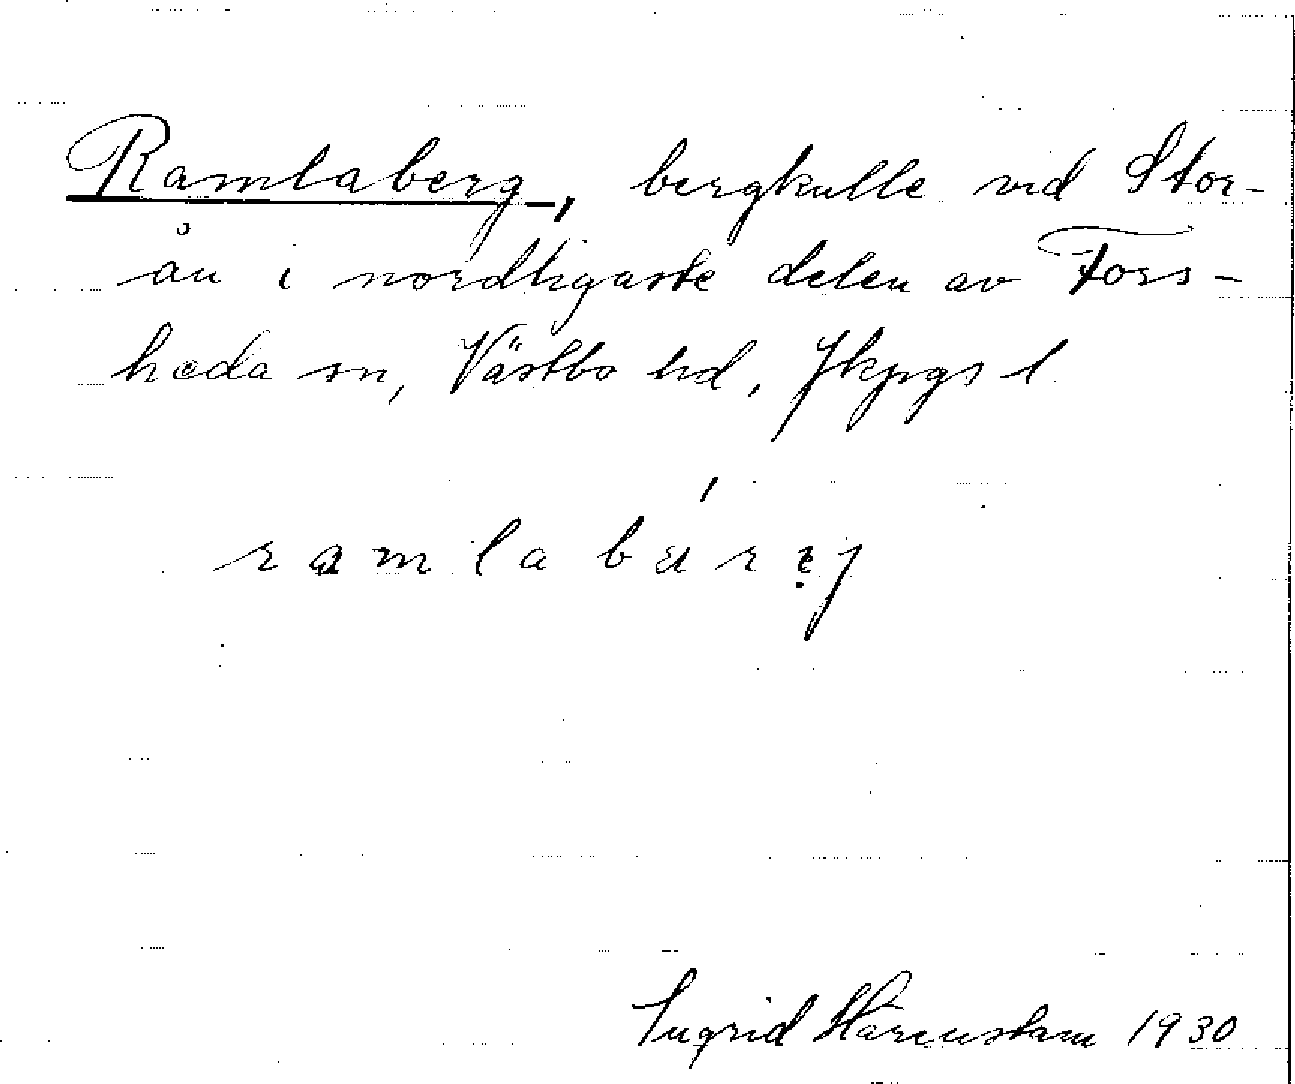 Ramlaberg, bergkulle vid Stor-
ån i nordligaste delen av Fors-
heda sn, Västbo hd, Jkpgs l.
ramlabärj
Ingrid Härenstam 1930